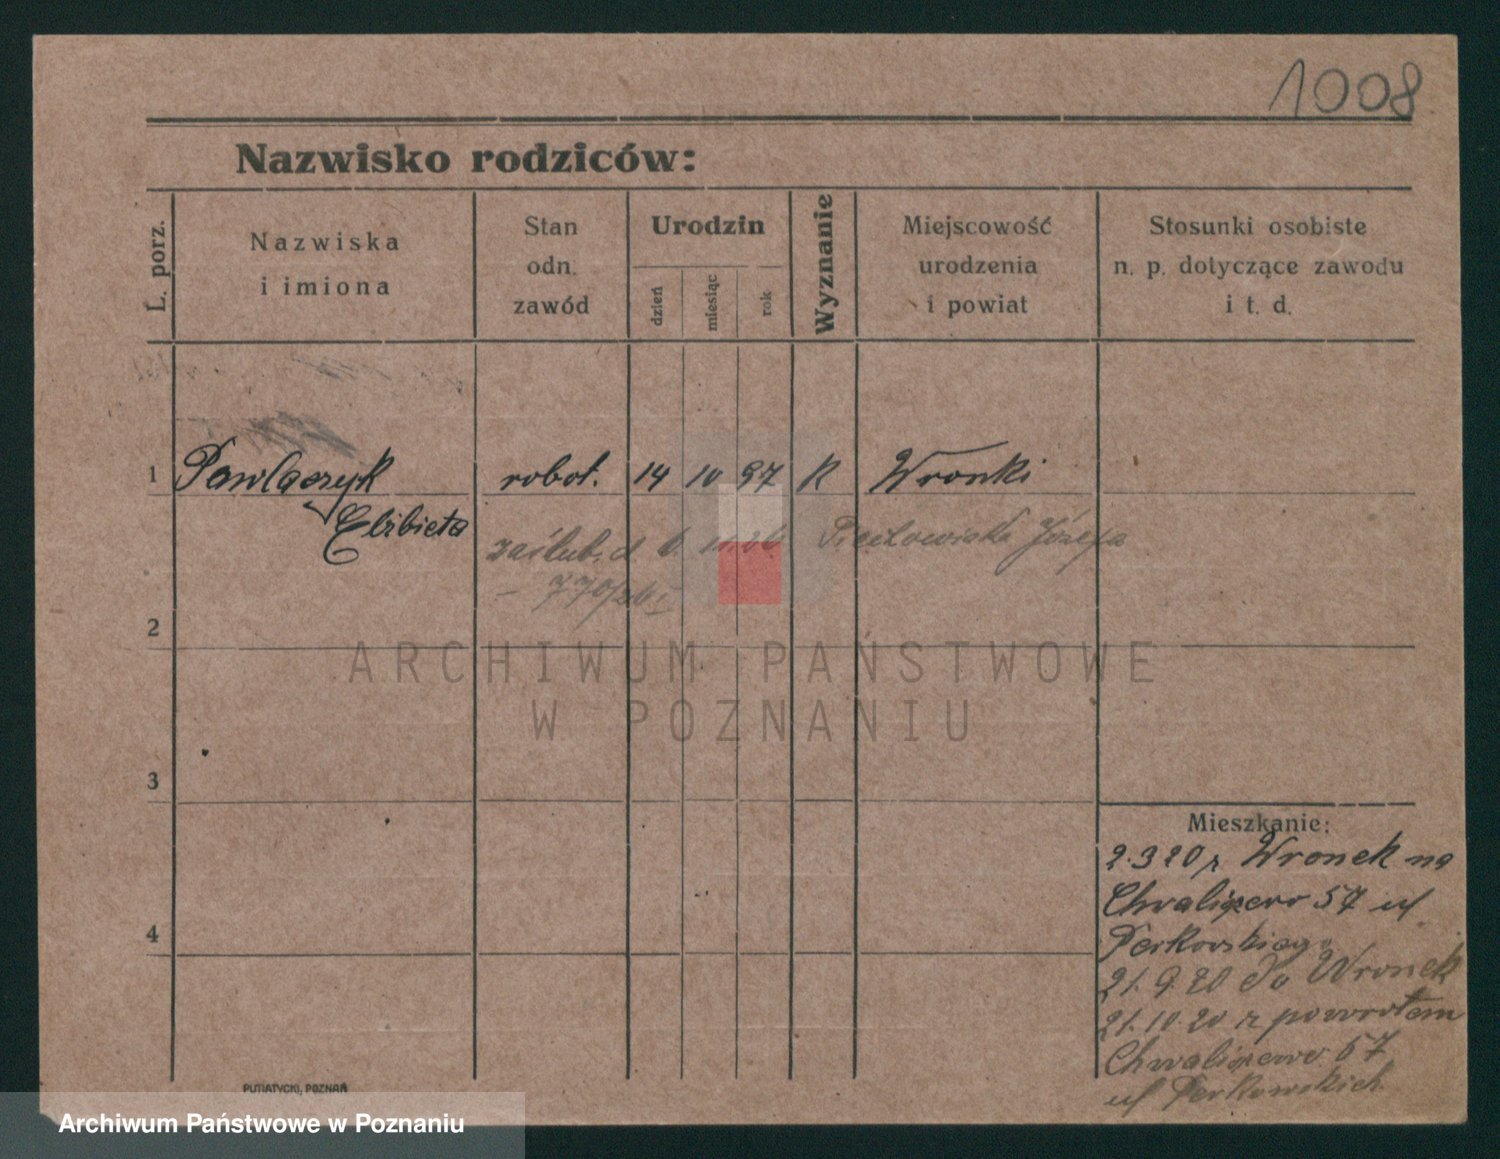 1008
Nazwisko rodziców:
L. porz.
Nazwiska
i imiona
Stan
odn.
zawód
Urodzin
dzień
miesiąc
rok
Wyznanie
Miejscowość
urodzenia
i powiat
Stosunki osobiste
n. p. dotyczące zawodu
i t. d.
1 Pawlaczyk robot. 14 10 97 K Wronki
Elżbieta
zaślub. d. 6. Józefa
2
ARCHIWUM PAŃSTWOWE
W POZNANIU
3
Mieszkanie:
2.3 20 z Wronek na
57 ul
4
21.9.20 do Wronek
21.10.20 z powrotem
57
ul
PUTIATYCKI, POZNAŃ
Archiwum Państwowe w Poznaniu